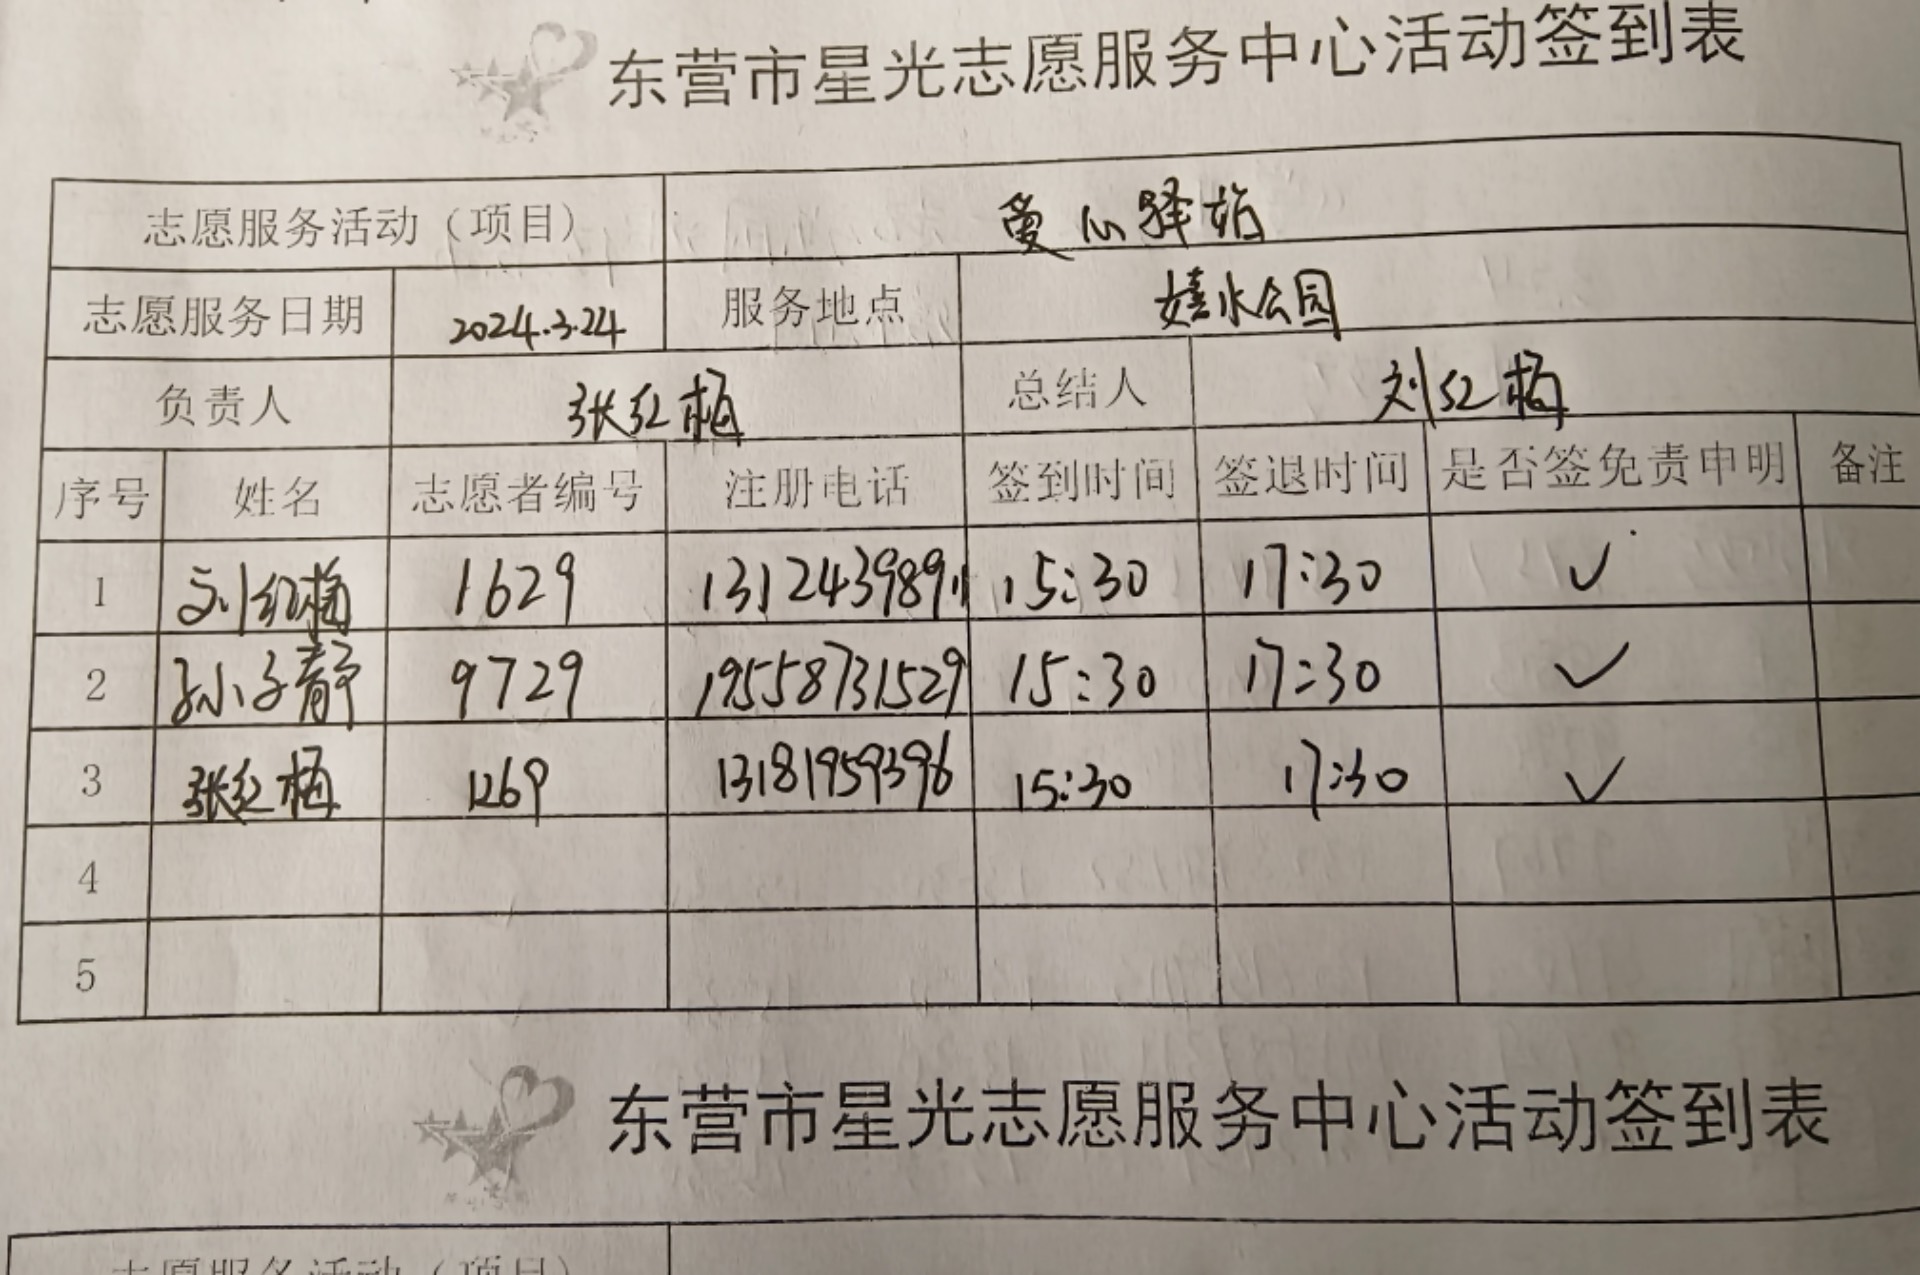 东营市星光志愿服务中心活动签到表
志愿服务活动（项目） 爱心驿站
志愿服务日期 2024.3.24 服务地点 嬉水公园
负责人 张红梅 总结人 刘红梅
序号 姓名 志愿者编号 注册电话 签到时间 签退时间 是否签免责申明 备注
1 刘红梅 1629 15:30 17:30 ✓
2 孙小子静 9729 19558731529 15:30 17:30 ✓
3 张红梅 1269 13181959396 15:30 17:30 ✓
4
5
东营市星光志愿服务中心活动签到表
志愿服务活动（项目）